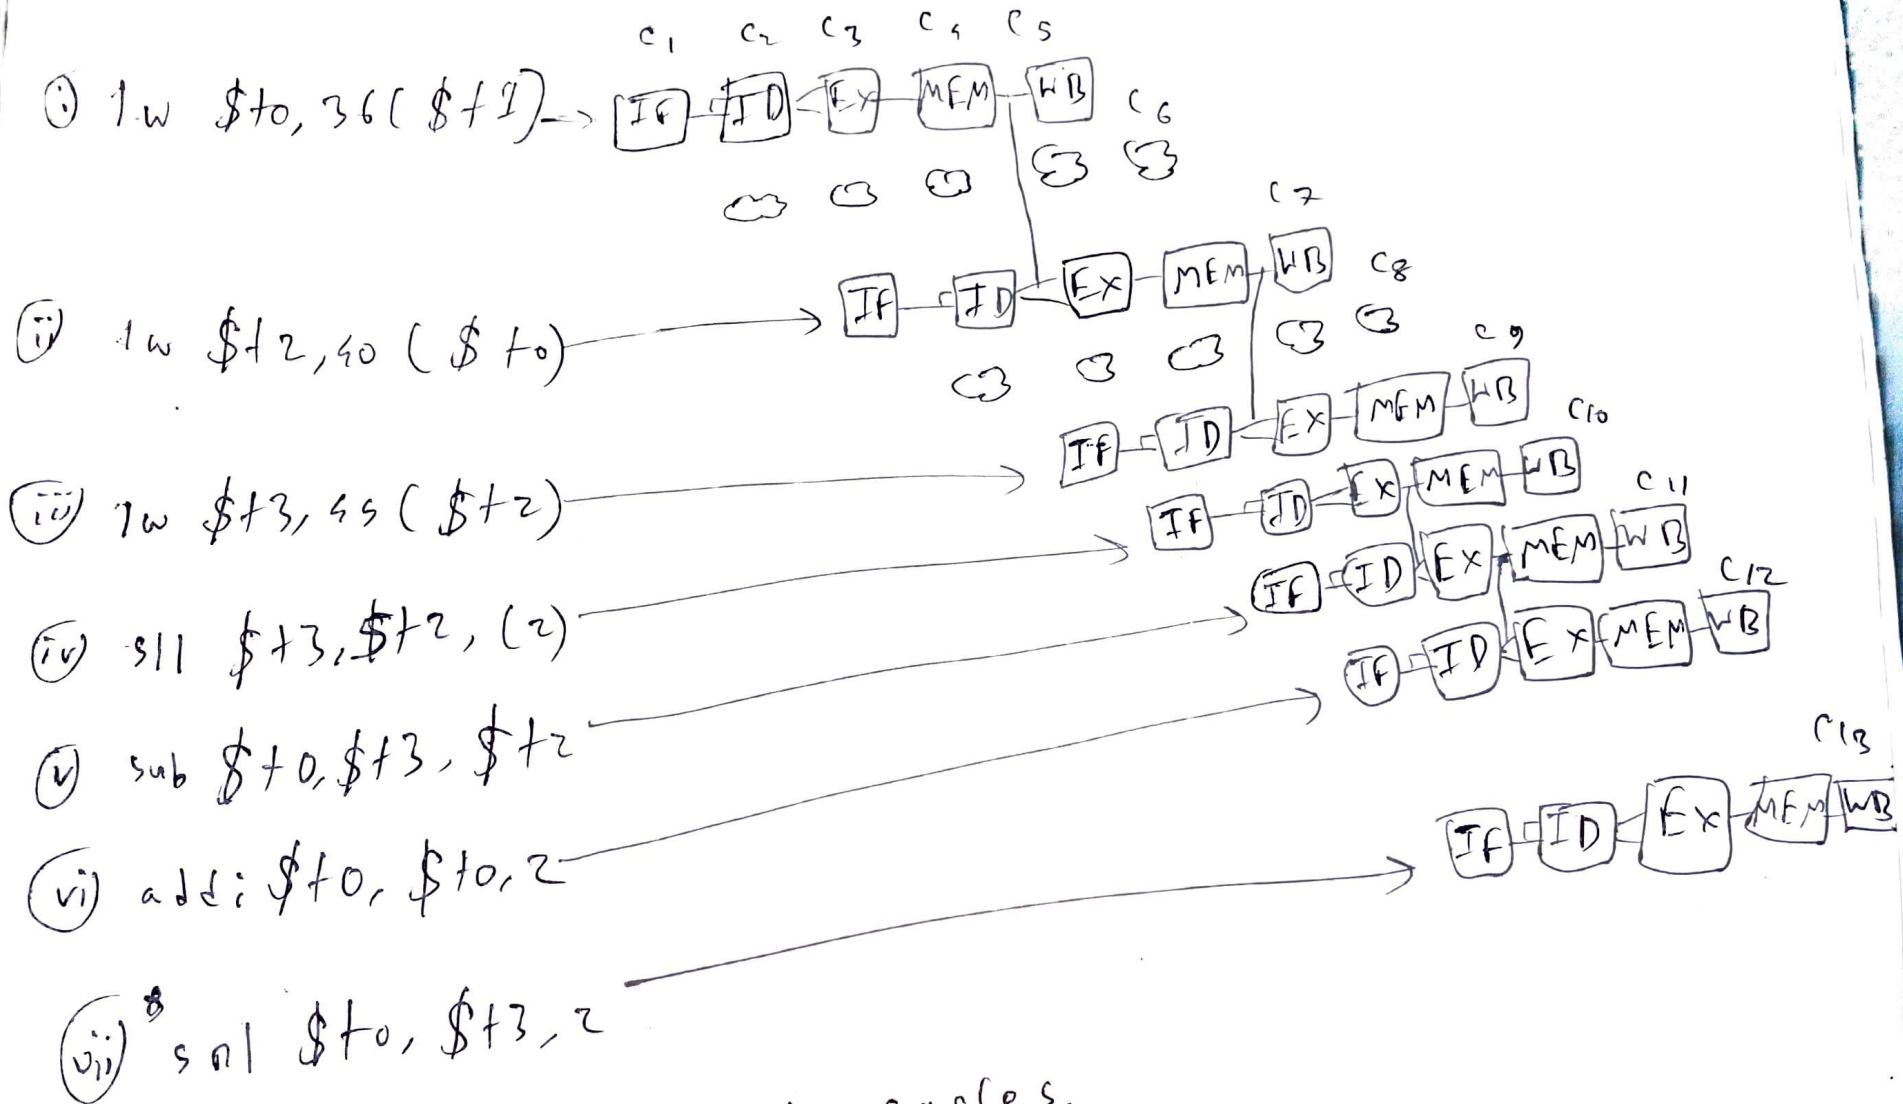 C1 C2 C3 C4 C5
(i) lw $t0, 36($t1) → IF ID EX MEM WB
C6
C7
(ii) lw $t2, 40 ($t0) → IF ID EX MEM WB
C8
C9
(iii) lw $t3, 44 ($t2) → IF ID EX MEM WB
C10
(iv) sll $t3, $t2, (2) → IF ID EX MEM WB
C11
(v) sub $t0, $t3, $t2 → IF ID EX MEM WB
C12
(vi) addi $t0, $t0, 2 → IF ID EX MEM WB
C13
(vii) srl $t0, $t3, 2 → IF ID EX MEM WB